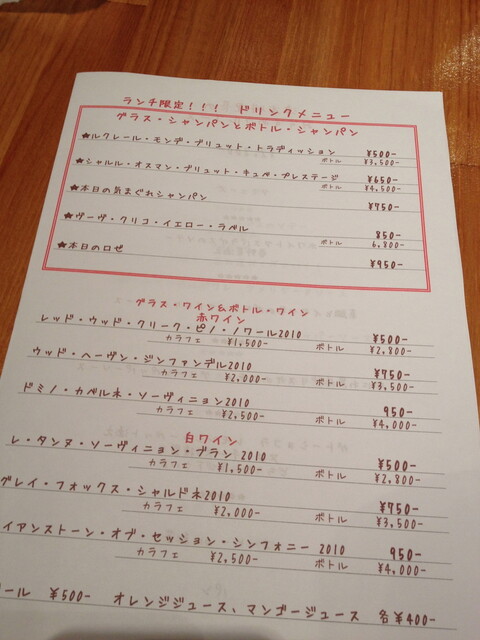 ランチ限定!!! ドリンクメニュー
グラス・シャンパンとボトル・シャンパン
★ルクレール・モンデ・ブリュット・トラディッション ¥500-
ボトル ¥3,500-
★シャルル・オスマン・ブリュット・キュベ・プレステージ ¥650-
ボトル ¥4,500-
★本日の気まぐれシャンパン ¥750-
★ヴーヴ・クリコ・イエロー・ラベル 850-
ボトル 6,800-
★本日のロゼ ¥950-
グラス・ワイン&ボトル・ワイン
赤ワイン
レッド・ウッド・クリーク・ピノ・ノワール2010 ¥500-
カラフェ ¥1,500- ボトル ¥2,800-
ウッド・ヘーヴン・ジンファンデル2010 ¥750-
カラフェ ¥2,000- ボトル ¥3,500-
ドミノ・カベルネ・ソーヴィニョン2010 950-
カラフェ ¥2,500- ボトル ¥4,000-
白ワイン
レ・タンヌ・ソーヴィニョン・ブラン 2010 ¥500-
カラフェ ¥1,500- ボトル ¥2,800-
グレイ・フォックス・シャルドネ2010 ¥750-
カラフェ ¥2,000- ボトル ¥3,500-
イアンストーン・オブ・セッション・シンフォニー 2010 950-
カラフェ ¥2,500- ボトル ¥4,000-
ール ¥500- オレンジジュース、マンゴージュース 各¥400-